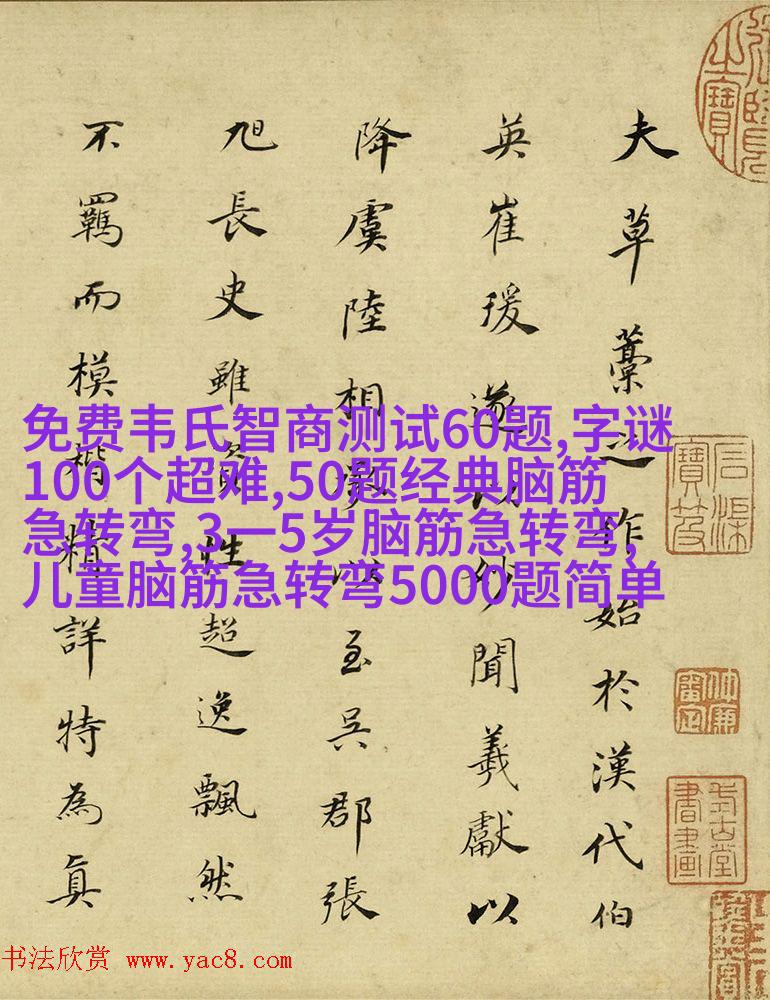 夫草藁之作始於漢代伯
英崔瑗遂妙聞羲獻以
降虞陸相至吳郡張
旭長史雖性超逸飄然
不羈而模楷精詳特為真
免费韦氏智商测试60题,字谜
100个超难,50题经典脑筋
急转弯,3一5岁脑筋急转弯,
儿童脑筋急转弯5000题简单
书法欣赏 www.yac8.com